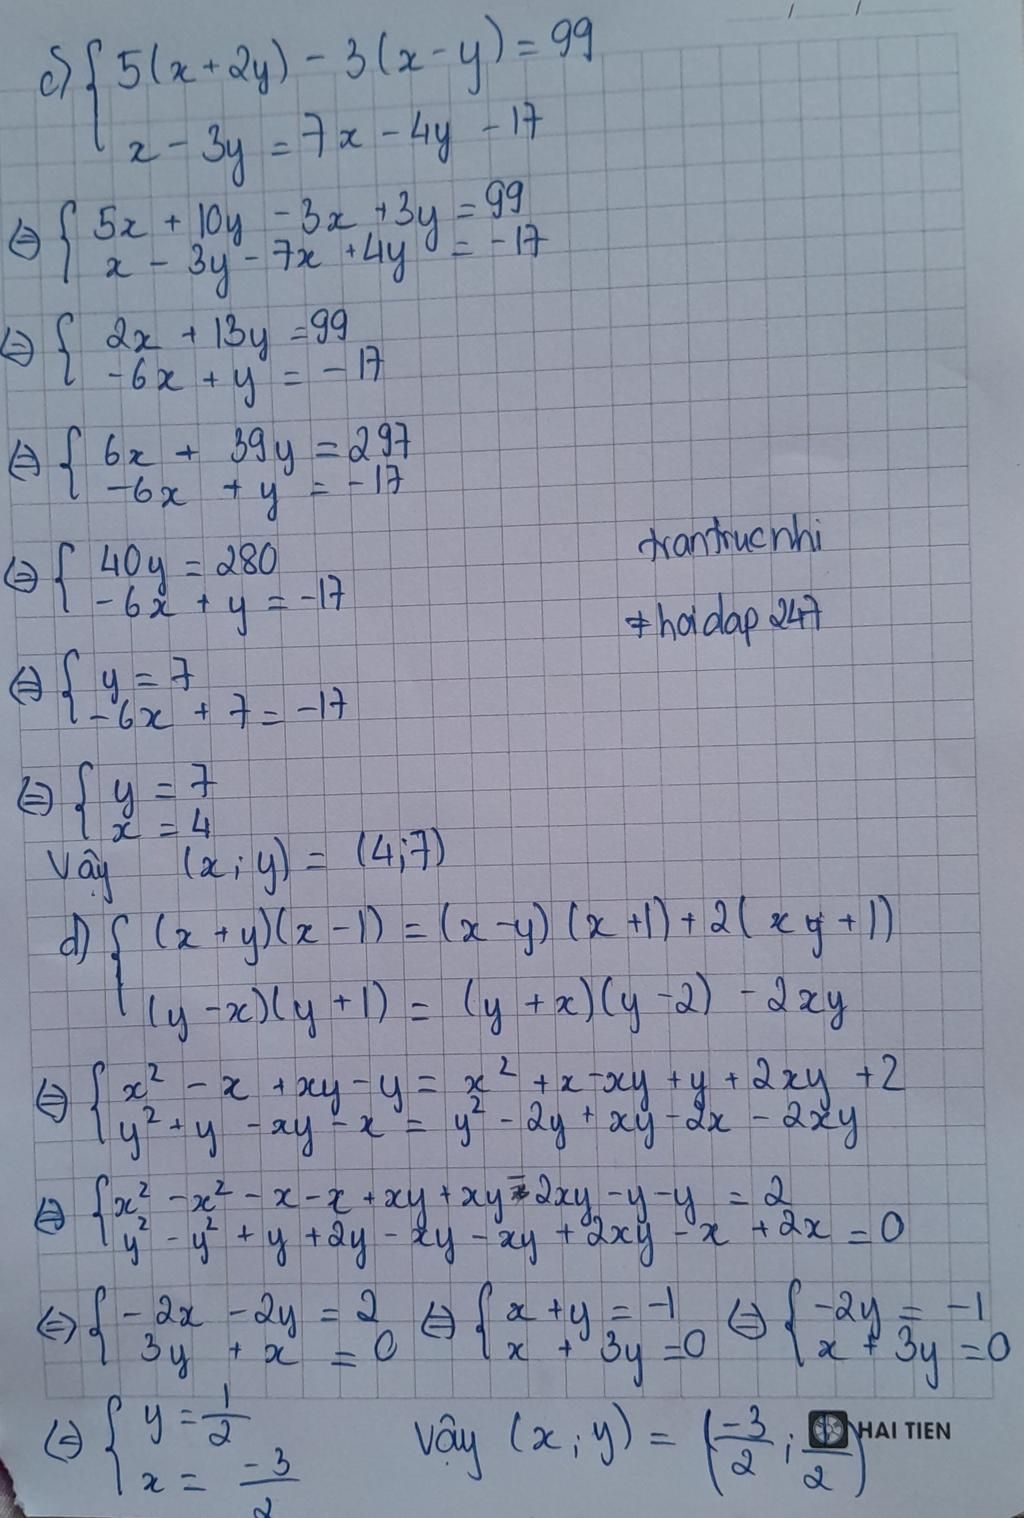 c) { 5(x + 2y) - 3(x - y) = 99
x - 3y = 7x - 4y - 17
⇔ { 5x + 10y - 3x + 3y = 99
x - 3y - 7x + 4y = -17
⇔ { 2x + 13y = 99
-6x + y = -17
⇔ { 6x + 39y = 297
-6x + y = -17
trantrucnhi
⇔ { 40y = 280
-6x + y = -17
≠ hoidap247
⇔ { y = 7
-6x + 7 = -17
⇔ { y = 7
x = 4
Vậy (x; y) = (4; 7)
d) { (x + y)(x - 1) = (x - y)(x + 1) + 2(xy + 1)
(y - x)(y + 1) = (y + x)(y - 2) - 2xy
⇔ { x² - x + xy - y = x² + x - xy + y + 2xy + 2
y² + y - xy - x = y² - 2y + xy - 2x - 2xy
⇔ { x² - x² - x - x + xy + xy - 2xy - y - y = 2
y² - y² + y + 2y - xy - xy + 2xy - x + 2x = 0
⇔ { -2x - 2y = 2 ⇔ { x + y = -1 ⇔ { -2y = -1
3y + x = 0 x + 3y = 0 x + 3y = 0
⇔ { y = 1/2 Vậy (x; y) = (-3/2; /2) HAI TIEN
x = -3/2